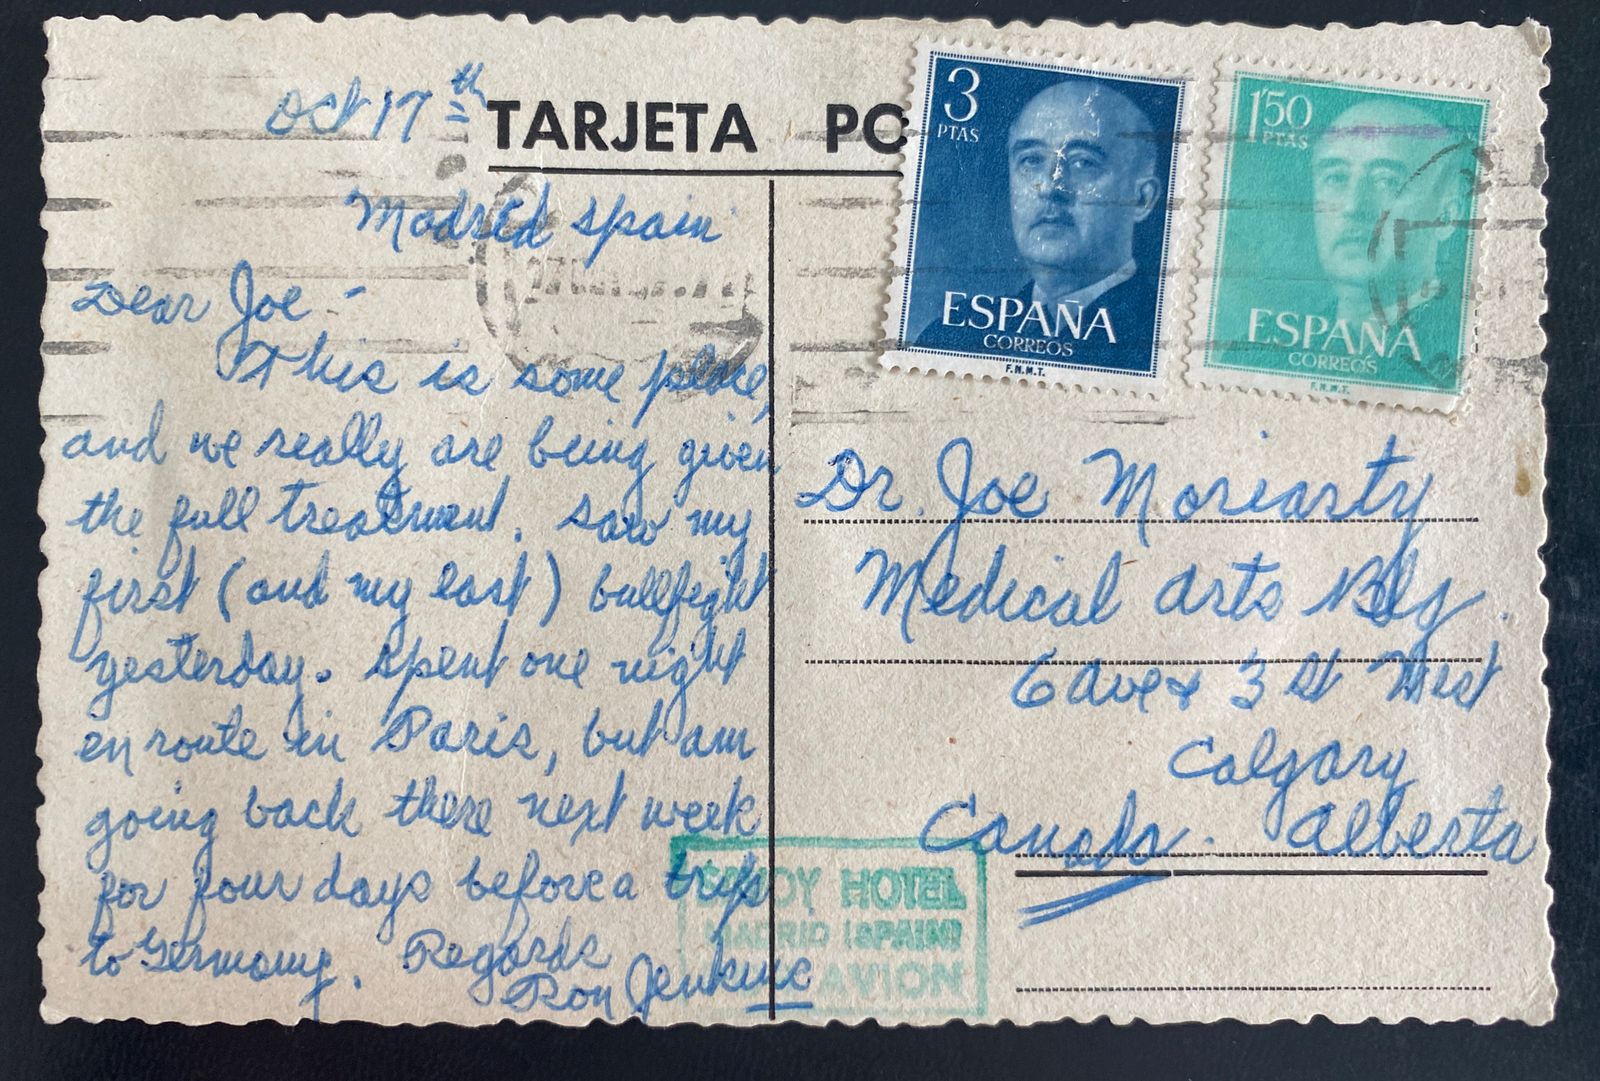 Oct 17th
TARJETA PO
Madrid Spain
Dear Joe -
This is some place,
and we really are being given
the full treatment. Saw my
first (and my last) bullfight
yesterday. Spent one night
en route in Paris, but am
going back there next week
for four days before a trip
to Germany. Regards
Ron Jenkins
3
PTAS
ESPAÑA
CORREOS
F.N.M.T.
1'50
PTAS
ESPAÑA
CORREOS
F.N.M.T.
Dr. Joe Moriarty
Medical Arts Blg.
6 Ave & 3 St West
Calgary
Canada. Alberta
HOTEL
MADRID (SPAIN)
AVION